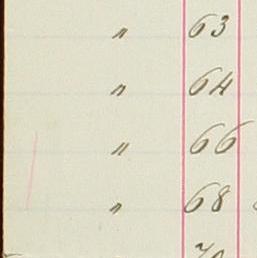 " 63
" 64
" 66
" 68
70